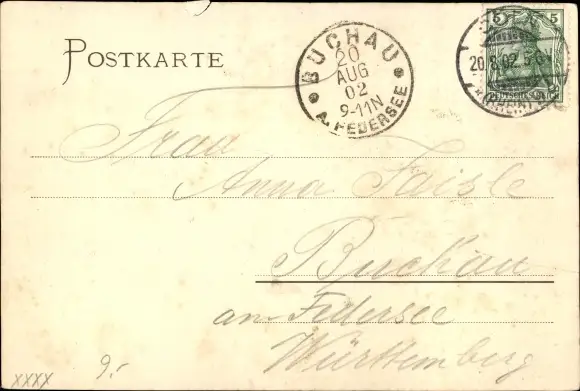 POSTKARTE
BUCHAU
20
AUG
02
9-11N
A. FEDERSEE
5 5
20.8.02. 5-6N
Frau
Anna Faisle
Buchau
am Federsee
Württemberg
9,-
XXXX